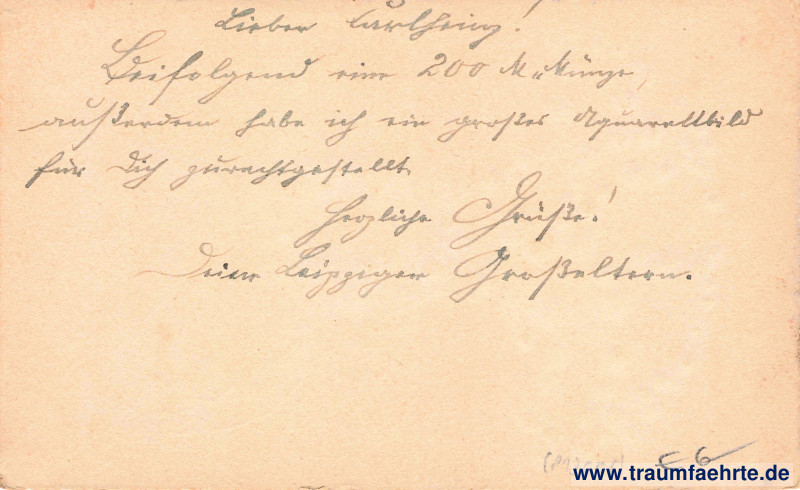 Lieber Carlheinz!
Beifolgend eine 200 M-Münze,
außerdem habe ich ein großes Aquarellbild
für Dich zurechtgestellt
Herzliche Grüße!
Deine Leipziger Großeltern.
6
www.traumfaehrte.de